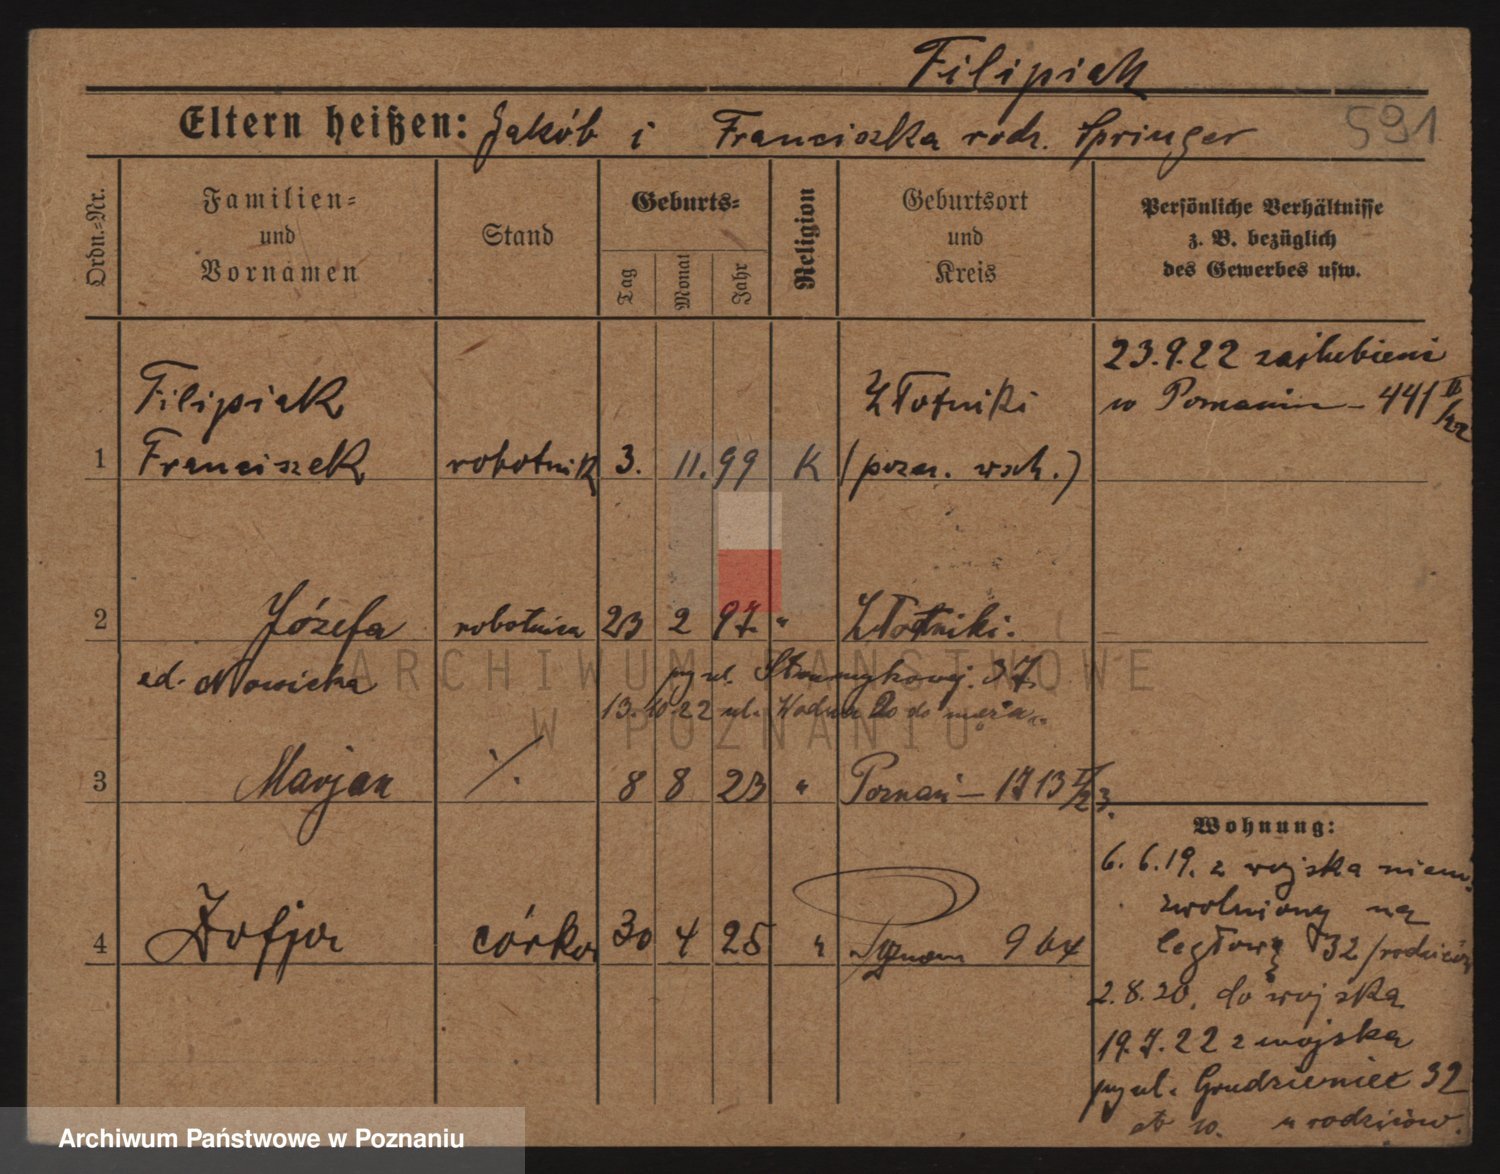 Filipiak
Eltern heißen: Jakób i Franciszka rodz. Springer
591
Ordn.-Nr.
Familien-
und
Vornamen
Stand
Geburts-
Tag
Monat
Jahr
Religion
Geburtsort
und
Kreis
Persönliche Verhältnisse
z. B. bezüglich
des Gewerbes usw.
23.9.22 zaślubieni
w Poznaniu - 441 II/22
Filipiak Złotniki
1 Franciszek robotnik 3. 11. 99 K (pozn. wsch.)
2 Józefa robotnica 23 2 97 " Złotniki.
Nowicka ul. 37.
13.10.22 ul. Wodna do męża
3 Marjan ./. 8 8 23 " Poznań - 1713 /23.
4 Zofja córka 30 4 25 " Poznań 964
Wohnung:
6.6.19. z wojska niem.
zwolniony na
32 /rodziców
2.8.20. do wojska
19.7.22 z wojska
ul. Grudzieniec 32
u rodziców.
ARCHIWUM PAŃSTWOWE
W POZNANIU
Archiwum Państwowe w Poznaniu